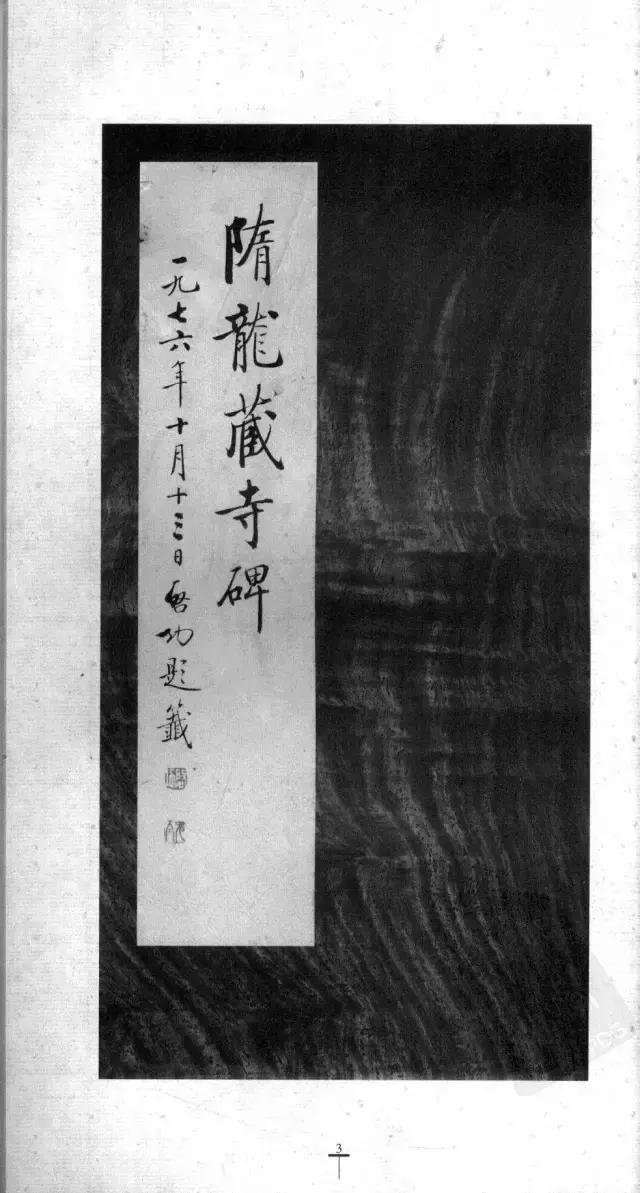 隋龍藏寺碑
一九七六年十月十三日啓功題籤
3